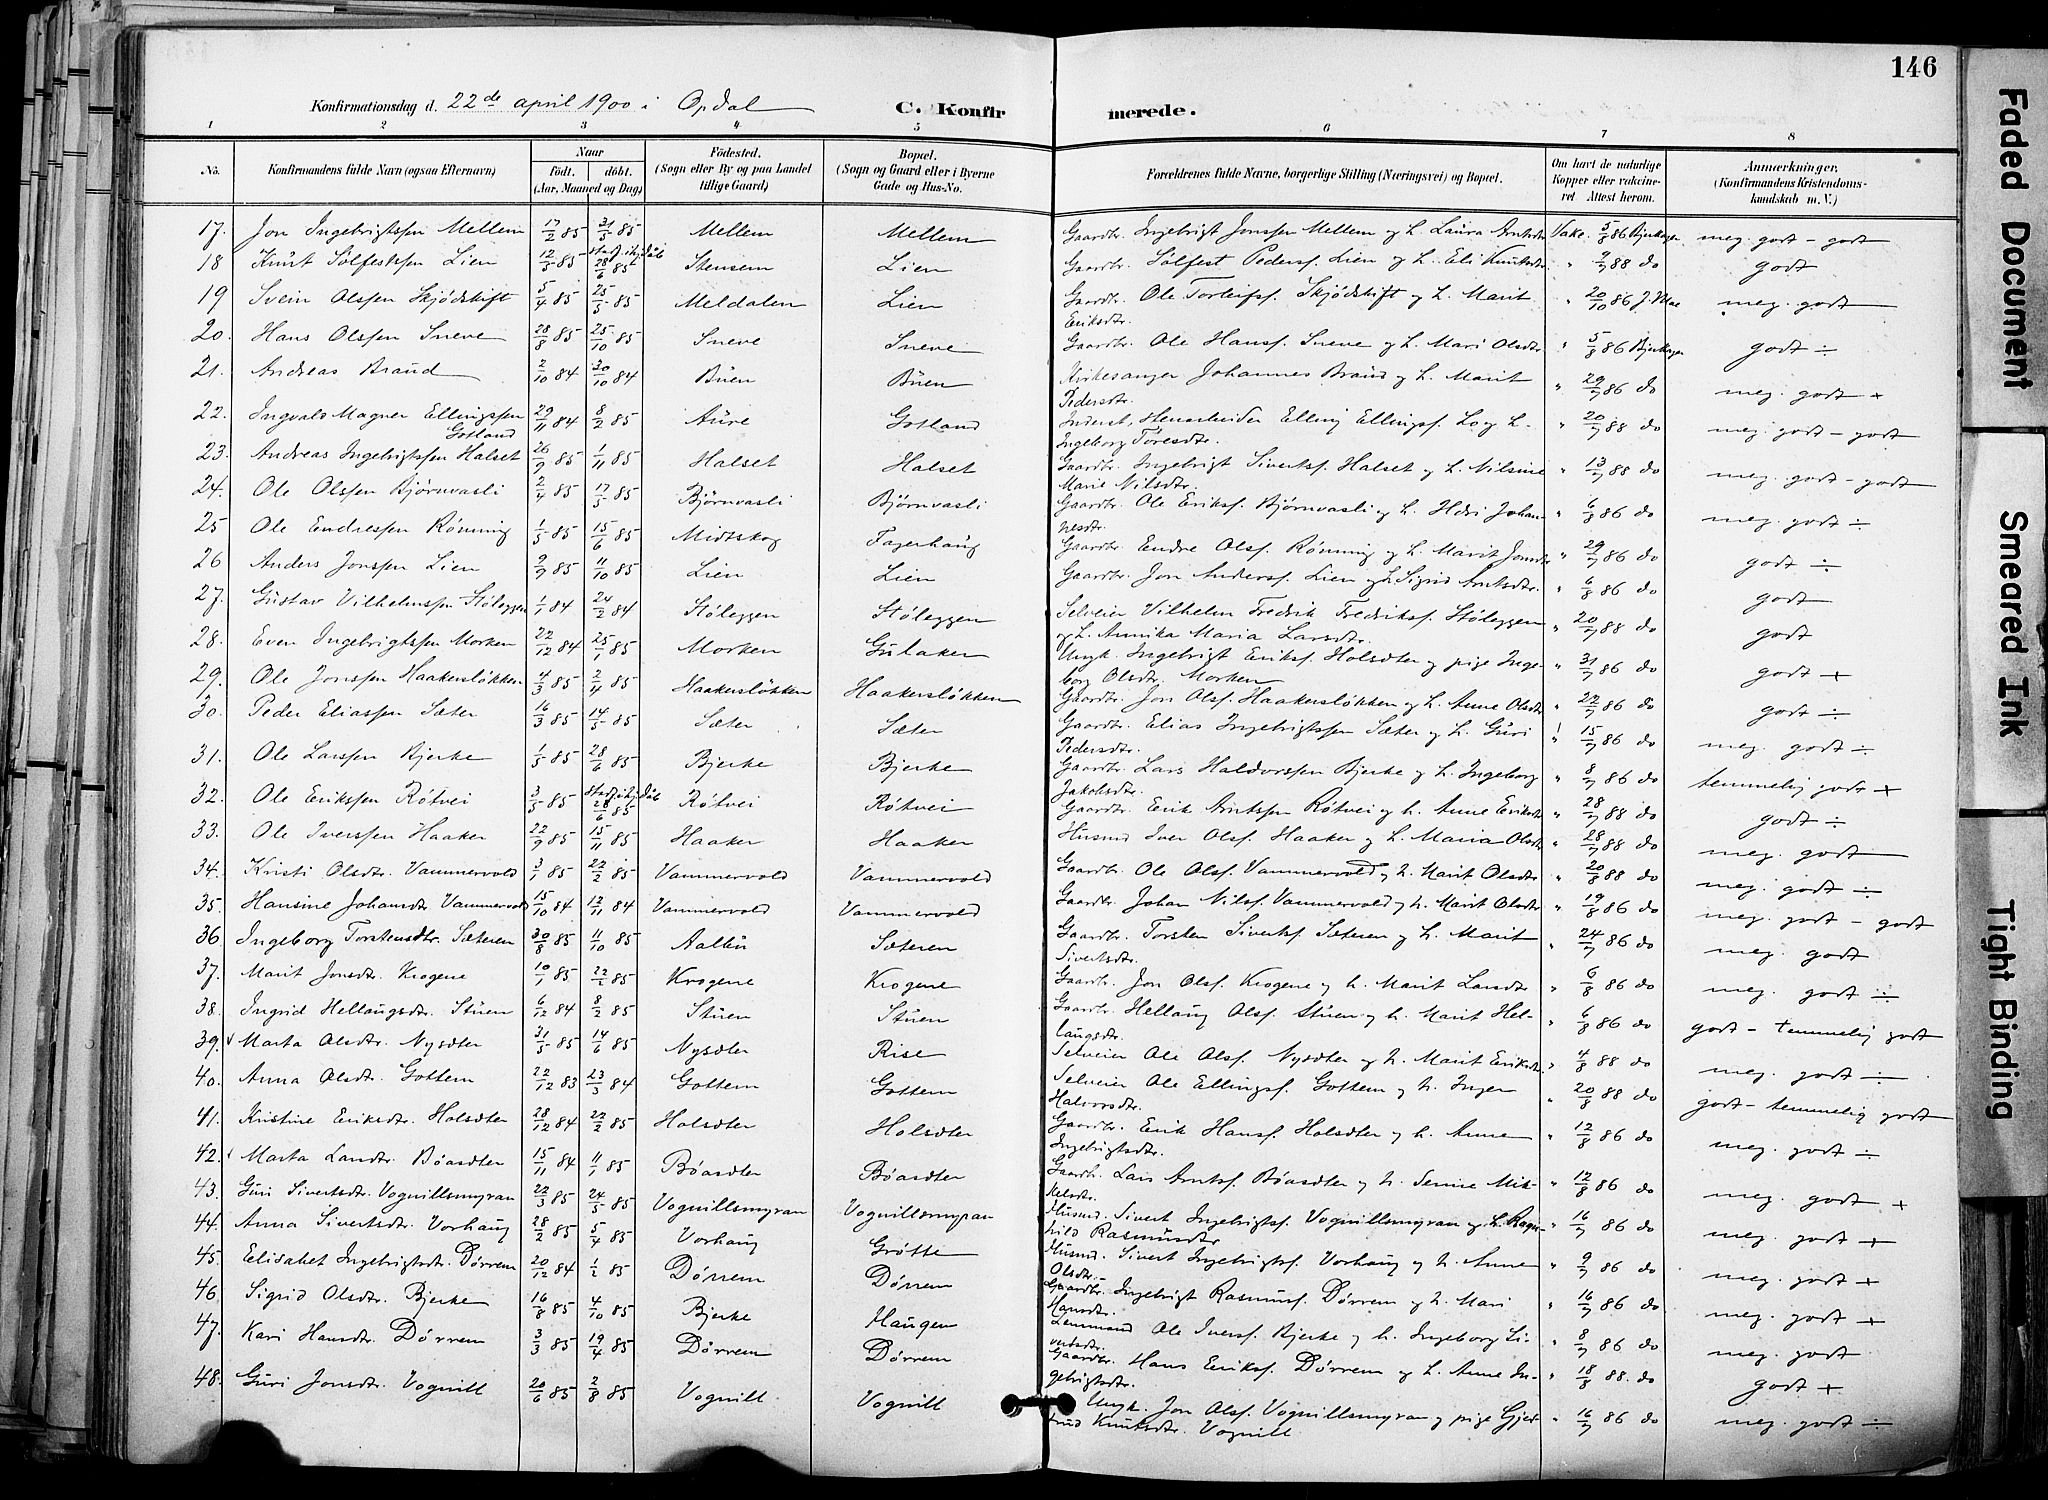 146
Konfirmationsdag d. 22de april 1900 i Opdal C. Konfirmerede.
1 2 3 4 5 6 7 8
No. Konfirmandens fulde Navn (ogsaa Efternavn) Naar födt. döbt. (Aar, Maaned og Dag) Födested. (Sogn eller By og paa Landet tillige Gaard) Bopæl. (Sogn og Gaard eller i Byerne Gade og Hus-No. Forældrenes fulde Navne, borgerlige Stilling (Næringsvei) og Bopæl. Om havt de naturlige Kopper eller vakcineret Attest herom. Anmærkninger, (Konfirmandens Kristendomskundskab m. V.)
17. Jon Ingebrigtssen Mellem 17/2 85 31/5 85 Mellem Mellem Gaardbr. Ingebrigt Jonssen Mellem og h. Laura Arntsdtr Vakc. 5/8 86 Bjerkager meg. godt - godt
18 Knut Sølfestssen Lien 12/5 85 28/6 85 Stensem Lien Gaardbr. Sølfest Pedersf. Lien og h. Eli Knutsdtr " 9/7 88 do godt
19 Svein Olssen Skjødskift 5/4 85 25/5 85 Meldalen Lien Gaardbr. Ole Torleifsf. Skjødskift og h. Marit Eriksdtr. " 20/10 86 meg. godt
20. Hans Olssen Sneve 28/8 85 25/10 85 Sneve Sneve Gaardbr. Ole Hansf. Sneve og h. Mari Olsdtr " 5/8 86 Bjerkager godt ÷
21. Andreas Braud 2/10 84 30/10 84 Buen Buen Kirkesanger Johannes Braud og h. Marit Pedersdtr. " 29/7 86 do meg. godt +
22. Ingvald Magner Ellingssen Gotland 29/11 84 8/2 85 Aure Gotland Inderst, Elling Ellingsf. Lo og h. Ingeborg Toresdtr. " 20/7 88 do meg. godt - godt
23. Andreas Ingebrigtssen Halset 26/9 85 1/11 85 Halset Halset Gaardbr. Ingebrigt Sivertsf. Halset og h. Nilsine Marie Nilsdtr. " 13/7 88 do meg. godt - godt
24. Ole Olssen Bjørnvasli 2/4 85 17/5 85 Bjørnvasli Bjørnvasli Gaardbr. Ole Eriksf. Bjørnvasli og h. Johannesdtr. " 6/8 86 do meg. godt ÷
25 Ole Endressen Rønning 1/5 85 15/6 85 Midtskog Fagerhaug Gaardbr. Endre Olsf. Rønning og h. Marit Jonsdtr " 29/7 86 do godt ÷
26 Anders Jonssen Lien 9/9 85 11/10 85 Lien Lien Gaardbr. Jon Andersf. Lien og h. Sigrid Arntsdtr. " 6/8 86 do godt
27. Gustav Vilhelmssen Støleggen 1/1 84 24/2 84 Støleggen Støleggen Selveier Vilhelm Fredrik Fredriksf. Støleggen og h. Annika Maria Larsdtr. " 20/7 88 do godt
28. Even Ingebrigtssen Morken 22/12 84 25/1 85 Morken Gulaker Ungk. Ingebrigt Eriksf. Holsdter og pige Ingeborg Olsdtr. Morken " 31/7 86 do godt +
29. Ole Jonssen Haakersløkken 4/3 85 2/4 85 Haakersløkken Haakersløkken Gaardbr. Jon Olsf. Haakersløkken og h. Anne Olsdtr " 22/7 86 do godt ÷
30. Peder Eliassen Sæter 16/3 85 14/5 85 Sæter Sæter Gaardbr. Elias Ingebrigtssen Sæter og h. Guri Pedersdtr. " 15/7 86 do meg. godt ÷
31. Ole Larssen Bjerke 1/5 85 28/6 85 Bjerke Bjerke Gaardbr. Lars Haldorssen Bjerke og h. Ingeborg Jakobsdtr. " 8/7 86 do temmelig godt +
32. Ole Erikssen Røtvei 3/5 85 28/6 85 Røtvei Røtvei Gaardbr. Erik Arntssen Røtvei og h. Anne Eriksdtr " 28/7 88 do godt ÷
33. Ole Iverssen Haaker 22/9 85 15/11 85 Haaker Haaker Husmd Iver Olsf. Haaker og h. Maria Olsdtr " 28/7 88 do meg. godt
34. Kristi Olsdtr. Vammervold 3/1 85 22/2 85 Vammervold Vammervold Gaardbr. Ole Olsf. Vammervold og h. Marit Olsdtr " 20/8 88 do meg. godt ÷
35. Hansine Johansdtr Vammervold 15/10 84 12/11 84 Vammervold Vammervold Gaardbr. Johan Nilsf. Vammervold og h. Marit Olsdtr " 19/8 86 do meg. godt - godt
36. Ingeborg Torstensdtr. Sæteren 30/8 85 11/10 85 Aalbu Sæteren Gaardbr. Torsten Sivertsf. Sæteren og h. Marit Sivertsdtr. " 24/7 86 do meg. godt
37. Marit Jonsdtr. Krogene 10/1 85 22/2 85 Krogene Krogene Gaardbr. Jon Olsf. Krogene og h. Marit Larsdtr " 6/8 86 do meg. godt ÷
38. Ingrid Hellaugsdtr. Stuen 6/12 84 8/2 85 Stuen Stuen Gaardbr. Hellaug Olsf. Stuen og h. Marit Hellaugsdtr. " 6/8 86 do godt - temmelig godt
39. Marta Olsdtr. Nysdter 31/5 85 14/6 85 Nysdter Rise Selveier Ole Olsf. Nysdter og h. Marit Eriksdtr. " 4/8 88 do meg. godt ÷
40. Anna Olsdtr. Gottem 22/12 83 23/3 84 Gottem Gottem Selveier Ole Ellingsf. Gottem og h. Inger Halvorsdtr. " 20/8 88 do godt - temmelig godt
41. Kristine Eriksdtr. Holsdter 28/12 84 22/2 85 Holsdter Holsdter Gaardbr. Erik Hansf. Holsdter og h. Anne Ingebrigtsdtr. " 12/8 86 do meg. godt ÷
42. Marta Larsdtr. Bøasdter 15/11 84 11/1 85 Bøasdter Bøasdter Gaardbr. Lars Arntsf. Bøasdter og h. Serine Mikkelsdtr. " 12/8 86 do meg. godt +
43. Guri Sivertsdtr. Vognillsmyran 22/3 85 24/5 85 Vognillsmyran Vognillsmyran Husmd. Sivert Ingebrigtsf. Vognillsmyran og h. Ragnhild Rasmusdtr " 16/7 86 do meg. godt +
44. Anna Sivertsdtr. Vorhaug 28/2 85 5/4 85 Vorhaug Grøtte Husmd. Sivert Ingebrigtsf. Vorhaug og h. Anne Olsdtr. " 9/7 86 do meg. godt +
45. Elisabet Ingebrigtsdtr. Dørrem 20/12 84 1/2 85 Dørrem Dørrem Gaardbr. Ingebrigt Rasmusf. Dørrem og h. Mari Hansdtr. " 16/7 86 do meg. godt +
46 Sigrid Olsdtr. Bjerke 16/8 85 4/10 85 Bjerke Haugen Lensmand Ole Iversf. Bjerke og h. Ingeborg Sivertsdtr. " 8/7 86 do meg. godt
47. Kari Hansdtr. Dørrem 3/3 85 19/4 85 Dørrem Dørrem Gaardbr. Hans Eriksf. Dørrem og h. Anne Ingebrigtsdtr. " 18/8 88. do godt +
48. Guri Jonsdtr. Vognill 20/6 85 2/8 85 Vognill Vognill Ungk. Jon Olsf. Vognillsmyran og pige Gjertrud Knutsdtr. Vognill " 16/7 86 do meg. godt ÷
Faded Document
Smeared Ink
Tight Binding